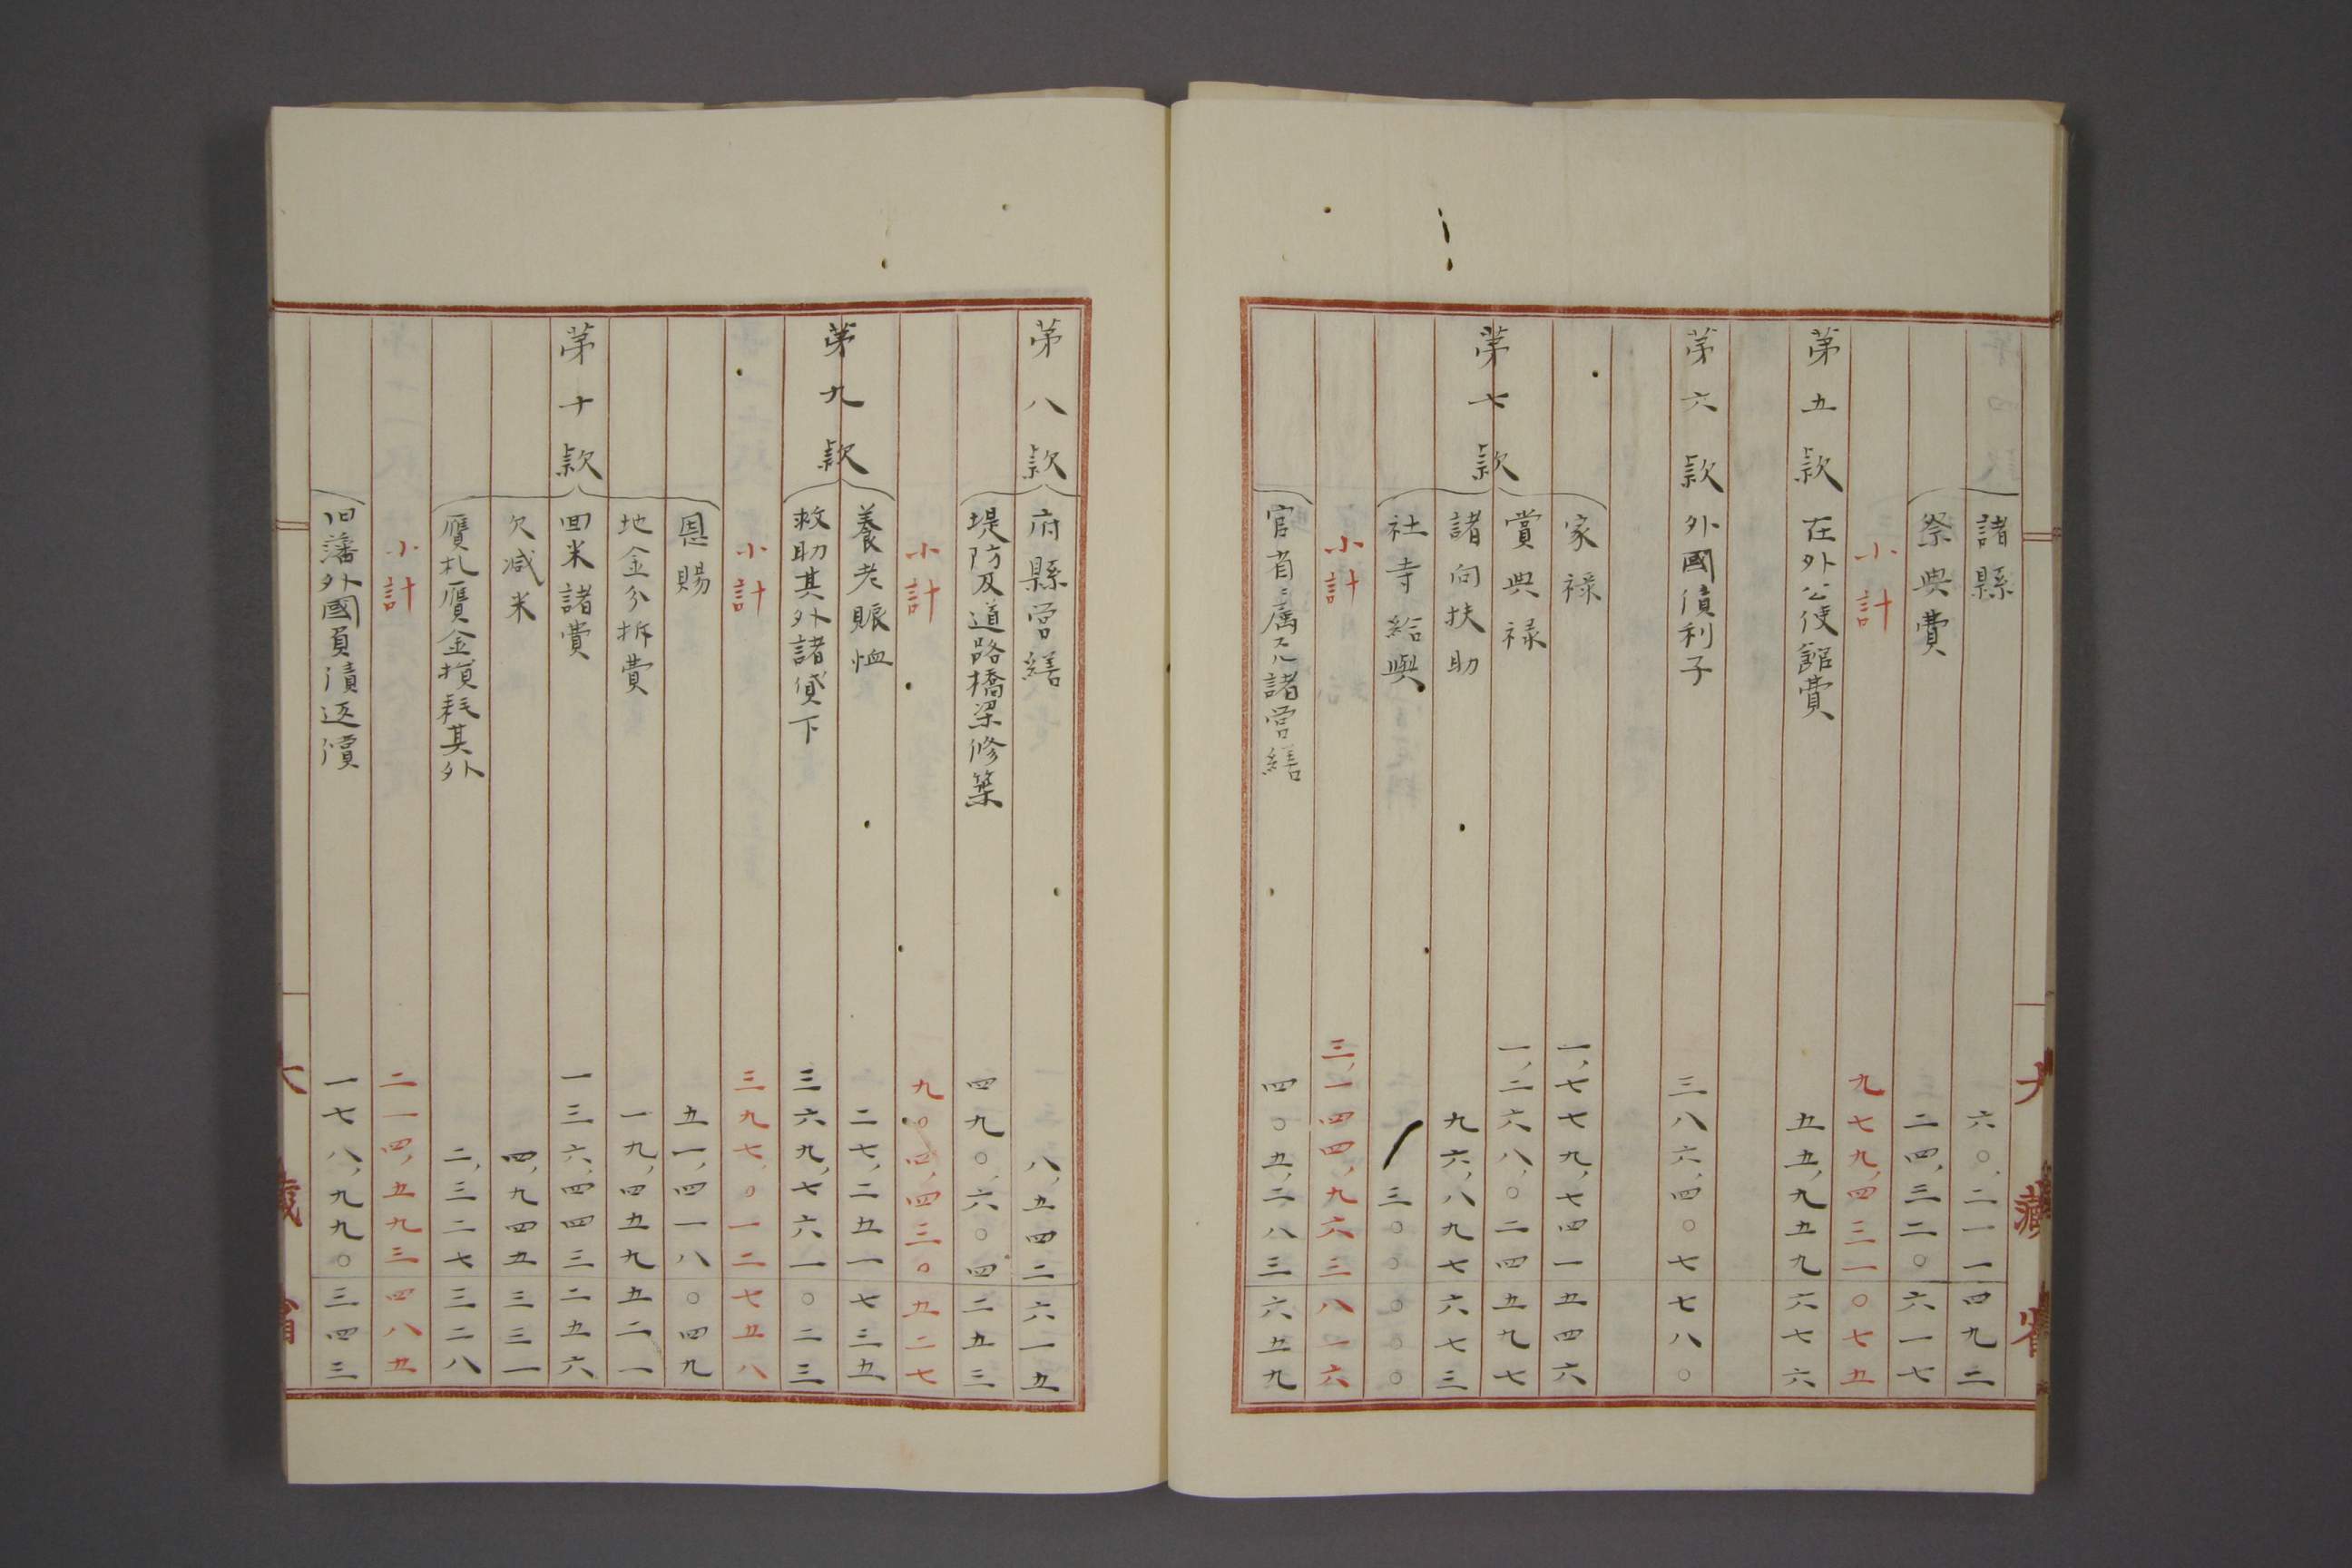 諸縣 六〇,二一一四九二
祭典費 二四,三二〇六一七
小計 九七九,四三一〇七五
第五款 在外公使館費 五五,九五九六七六
第六款 外國債利子 三八六,四〇七七八〇
第七款
家禄 一,七七九,七四一五四六
賞典禄 一,二六八,〇二四五九七
諸向扶助 九六,八九七六七三
社寺給與 三〇〇〇〇〇
小計 三,一四四,九六三八一六
官省ニ属スル諸営繕 四〇五,二八三六五九
大藏省
第八款
府縣営繕 八,五四二六一五
堤防及道路橋梁修築 四九〇,六〇四二五三
小計 九〇四,四三〇五二七
第九款
養老賑恤 二七,二五一七三五
救助其外諸貸下 三六九,七六一〇二三
小計 三九七,〇一二七五八
第十款
恩賜 五一,四一八〇四九
地金分拆費 一九,四五九五二一
囬米諸費 一三六,四四三二五六
欠减米 四,九四五三三一
贋札贋金損耗其外 二,三二七三二八
小計 二一四,五九三四八五
旧藩外國負債返償 一七八,九九〇三四三